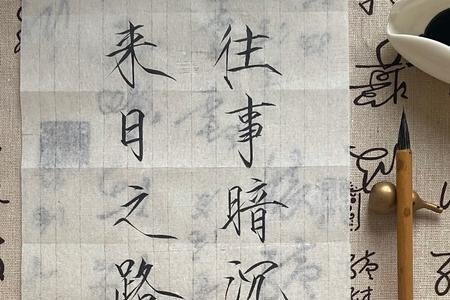 往事暗沉
来日之路